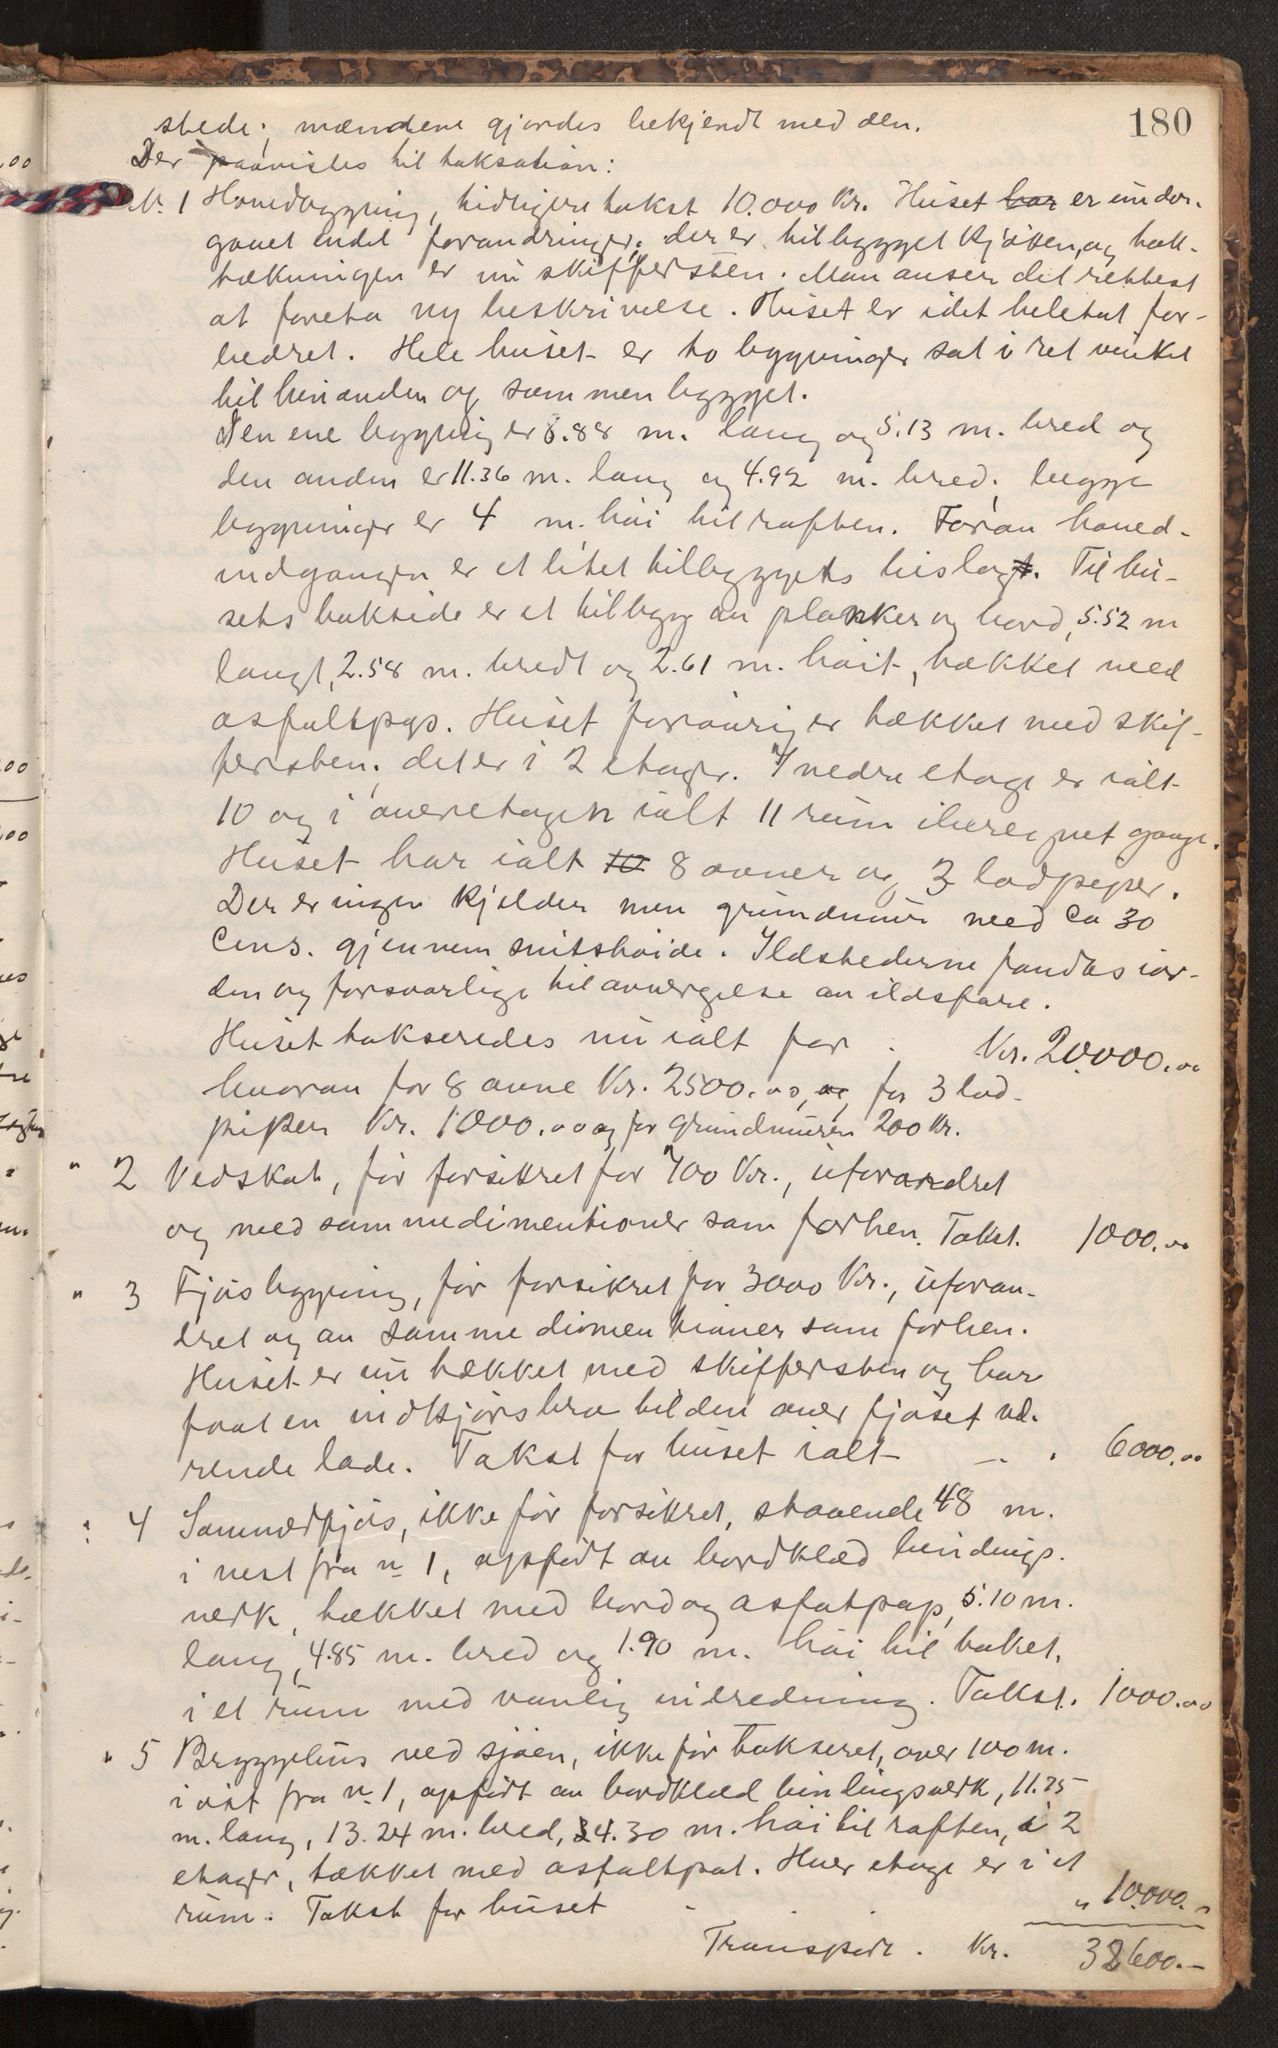 180
stede; mændene gjordes bekjendt med den.
Der paavistes til taksation:
No. 1 Hovedbygging, tidligere takst 10.000 Kr. Huset har er under-
gaaet endel forandringer; der er tilbygget kjökken, og tak-
tækningen er nu skiffersten. Man anser det rettest
at foreta ny beskrivelse. Huset er i det heletat for-
bedret. Hele huset er to bygninger sat i ret vinkel
til hinanden og sammenbygget.
Den ene bygning er 8.88 m. lang og 5.13 m. bred og
den anden er 11.36 m. lang og 4.92 m. bred; begge
bygninger er 4 m. höi til raften. Foran hoved-
indgangen er et litet tilbygget bislag. Til hu-
sets bakside er et tilbygg av planker og bord, 5.52 m
langt, 2.58 m. bredt og 2.61 m. höit, tækket med
asfaltpap. Huset forövrig er tækket med skif-
fersten; det er i 2 etager. I nedre etage er ialt
10 og i överetagen ialt 11 rum iberegnet gange.
Huset har ialt 10 8 ovner og 3 lodpiper.
Der er ingen kjelder men grundmur med ca 30
cms. gjennemsnitshöide. Ildstederne fandtes i or-
den og forsvarlige til avvergelse av ildsfare.
Huset takseredes nu ialt for . Kr. 20.000.00
hvorav for 8 ovne Kr. 2500.00, og for 3 lod-
piper Kr. 1000.00 og for grundmuren 200 Kr.
" 2 Vedskot, för forsikret for 400 Kr., uforandret
og med samme dimentioner som forhen. Takst. 1000.00
" 3 Fjösbygging, för forsikret for 3000 Kr., uforan-
dret og av samme dimentioner som forhen.
Huset er nu tækket med skiffersten og har
faat en indkjörsbro til den over fjöset væ-
rende lade. Takst for huset ialt - . 6000.00
" 4 Sommerfjös, ikke för forsikret, staaende 48 m.
i vest fra no 1, opfört av bordklæd bindings-
verk, tækket med bord og asfatpap, 5.10 m.
lang, 4.85 m. bred og 1.90 m. höi til taket,
i et rum med vanlig indredning. Takst. 1000.00
" 5 Bryggehus ved sjöen, ikke för takseret, over 100 m.
i öst fra no 1, opfört av bordklæd bindingsverk, 11.25
m. lang, 13.24 m. bred, 4.30 m. höi til raften, i 2
etager, tækket med asfaltpat. Hver etage er i et
rum. Takst for huset " 10.000.-
Transport . Kr. 38600.-